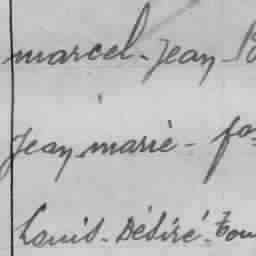 marcel-Jean
Jean marie-
Louis-Désiré-